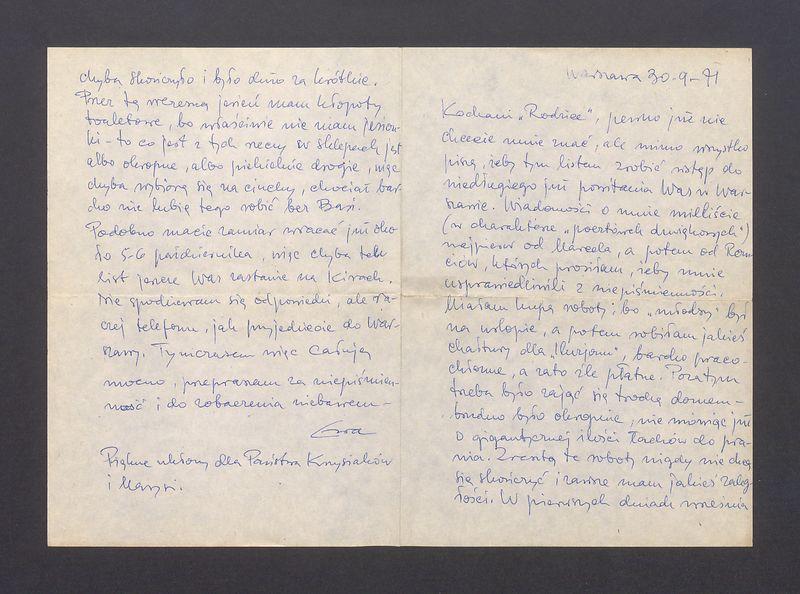 Warszawa 30-9-71
Kochani "Rodzice", pewno już nie
chcecie mnie znać, ale mimo wszystko
piszę, żeby tym listem zrobić wstęp do
niedługiego już powitania Was w War-
szawie. Wiadomości o mnie mieliście
(w charakterze "pocztówek dźwiękowych")
najpierw od Marceda, a potem od Rom
ciów, których prosiłam, żeby mnie
usprawiedliwili z niepiśmienności.
Miałam kupę roboty; bo "młodzi" byli
na urlopie, a potem robiłam jakieś
chałtury dla "Kurjom", bardzo praco-
chłonne, a zato źle płatne. Pozatym
trzeba było zająć się trochę domem -
brudno było okropnie, nie mówiąc już
o gigantycznej ilości łachów do pra-
nia. Zresztą te roboty nigdy nie chcą
się skończyć i zawsze mam jakieś zaleg
łości. W pierwszych dniach września
chyba skończyło i było dużo za krótkie.
Przez tą wczesną jesień mam kłopoty
toaletowe, bo właściwie nie mam jesion-
ki - to co jest z tych rzeczy w sklepach jest
albo okropne, albo piekielnie drogie, więc
chyba wybiorę się na ciuchy, chociaż bar-
dzo nie lubię tego robić bez Basi.
Podobno macie zamiar wracać już oko
ło 5-6 października, więc chyba tak
list jeszcze Was zastanie na Kirach.
Nie spodziewam się odpowiedzi, ale ra-
czej telefonu, jak przyjedziecie do War-
szawy. Tymczasem więc całuję
mocno, przepraszam za niepiśmien-
ność i do zobaczenia niebawem -
Ewa
Piękne ukłony dla Państwa Krzysiaków
i Marysi.